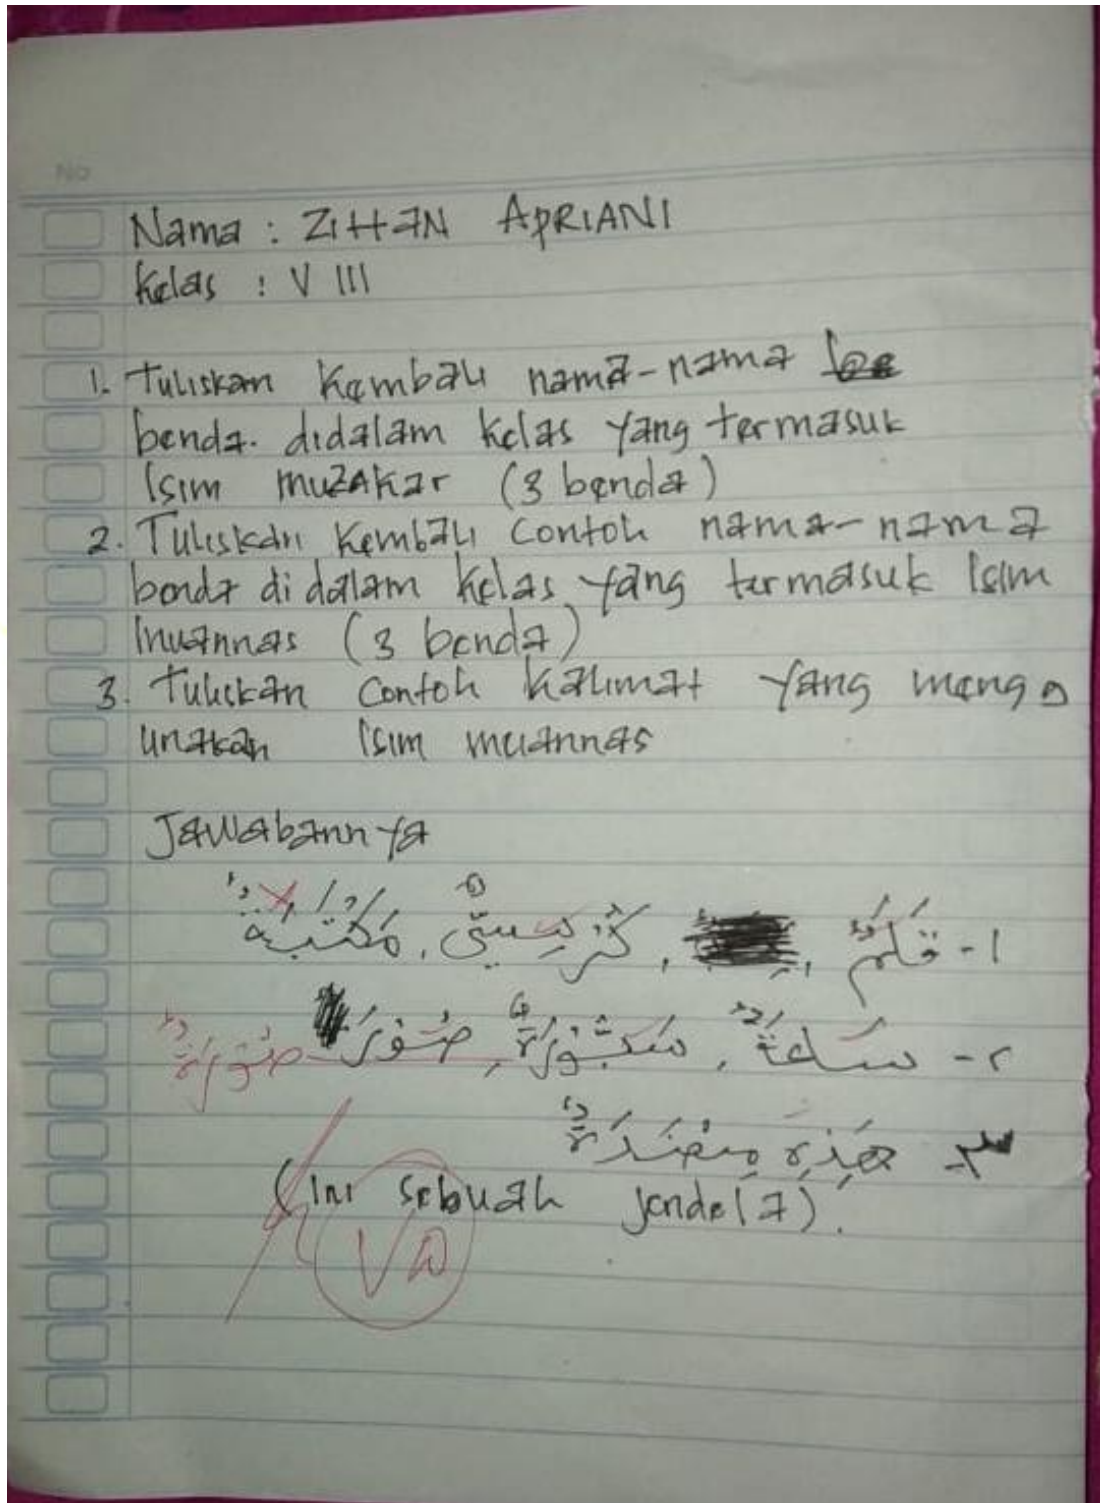 No
Nama : ZIHAN APRIANI
Kelas : VIII
1. Tuliskan Kembali nama-nama
benda. didalam kelas yang termasuk
Isim muzakar (3 benda)
2. Tuliskan Kembali Contoh nama-nama
benda di dalam kelas yang termasuk Isim
muannas (3 benda)
3. Tuliskan Contoh kalimat yang mengg
unakan Isim muannas
Jawabannya
١- قَلَمٌ , كُرْسِيٌّ , مَكْتَبَةٌ
٢- سَاعَةٌ , سَبُّوْرَةٌ , صُوْرَ صُوْرَةٌ
٣- هَذِهِ مِنْضَدَةٌ
(Ini sebuah jendela).